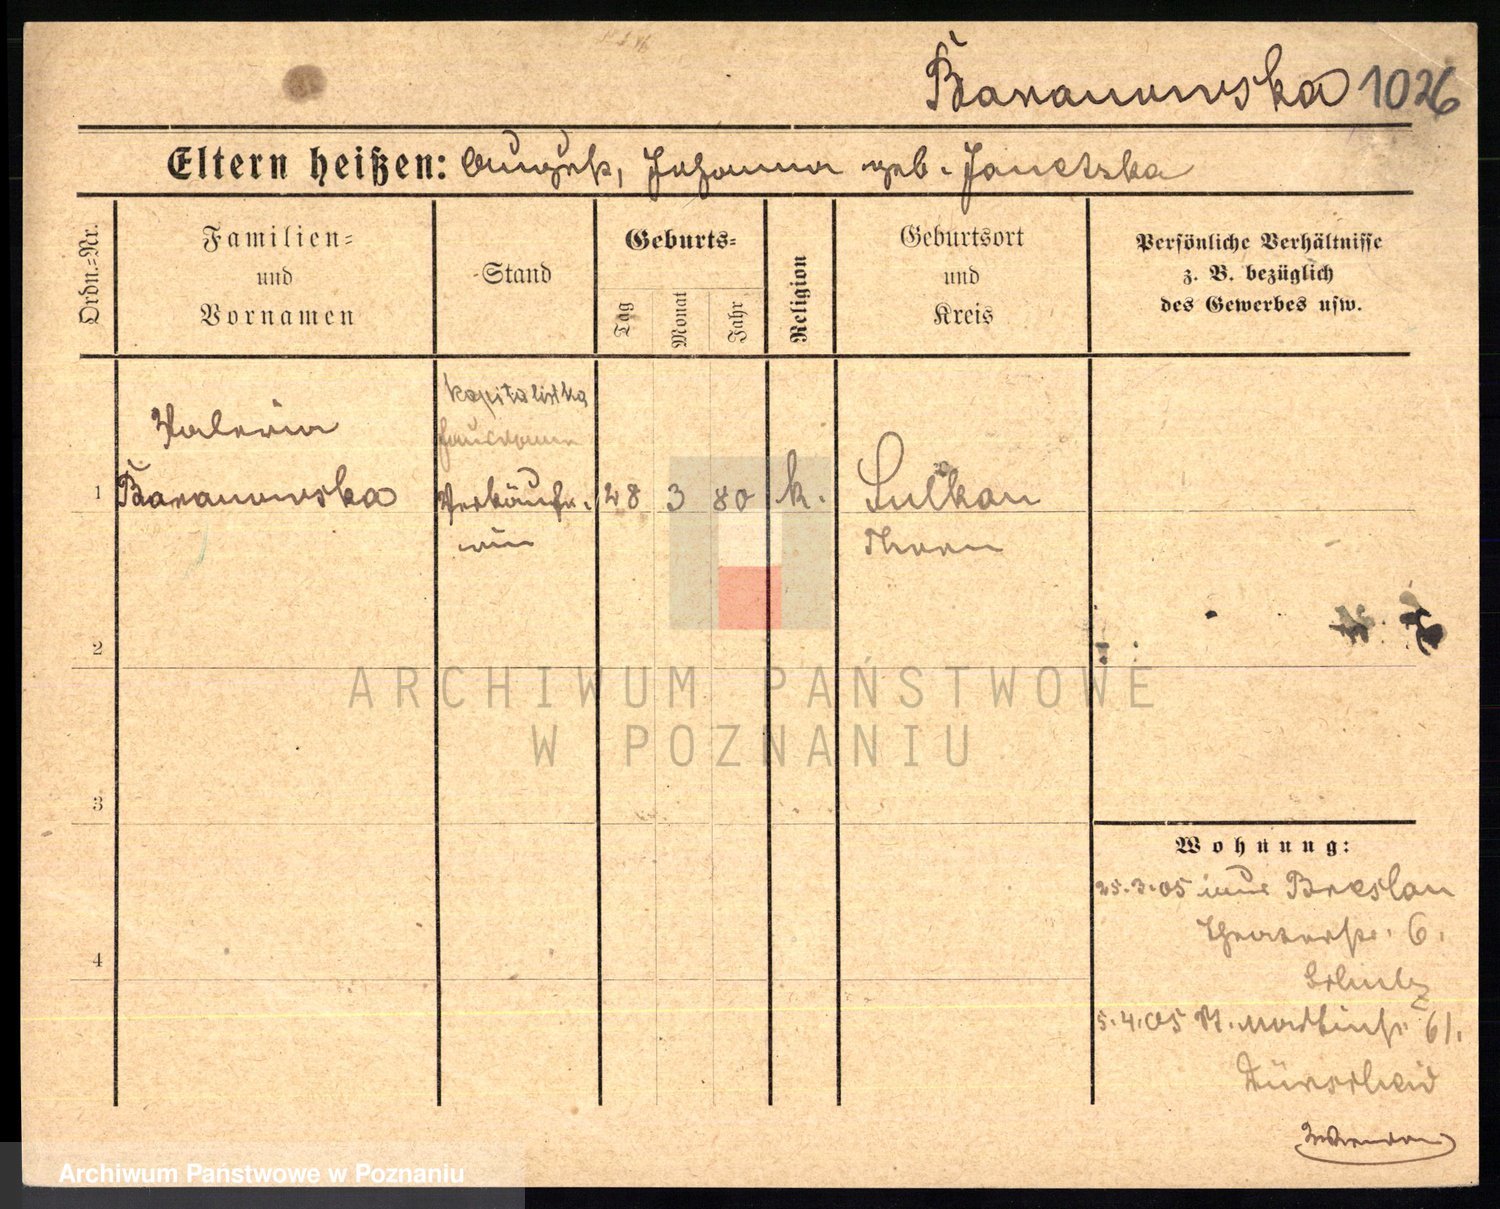 Baranowska 1026
Eltern heißen: August, Johanna geb. Janetzka
Ordn.=Nr.
Familien=
und
Vornamen
Stand
Geburts=
Tag
Monat
Jahr
Religion
Geburtsort
und
Kreis
Persönliche Verhältnisse
z. B. bezüglich
des Gewerbes usw.
kapitalistka
Valeria
Hausdame
1 Baranowska Verkäufe- 28 3 80 k. Sulkau
rin Thorn
2
ARCHIWUM PAŃSTWOWE
W POZNANIU
3
Wohnung:
25.3.05 aus Breslau
Theaterstr. 6.
4
5.4.05 St. Martinstr. 61.
Archiwum Państwowe w Poznaniu